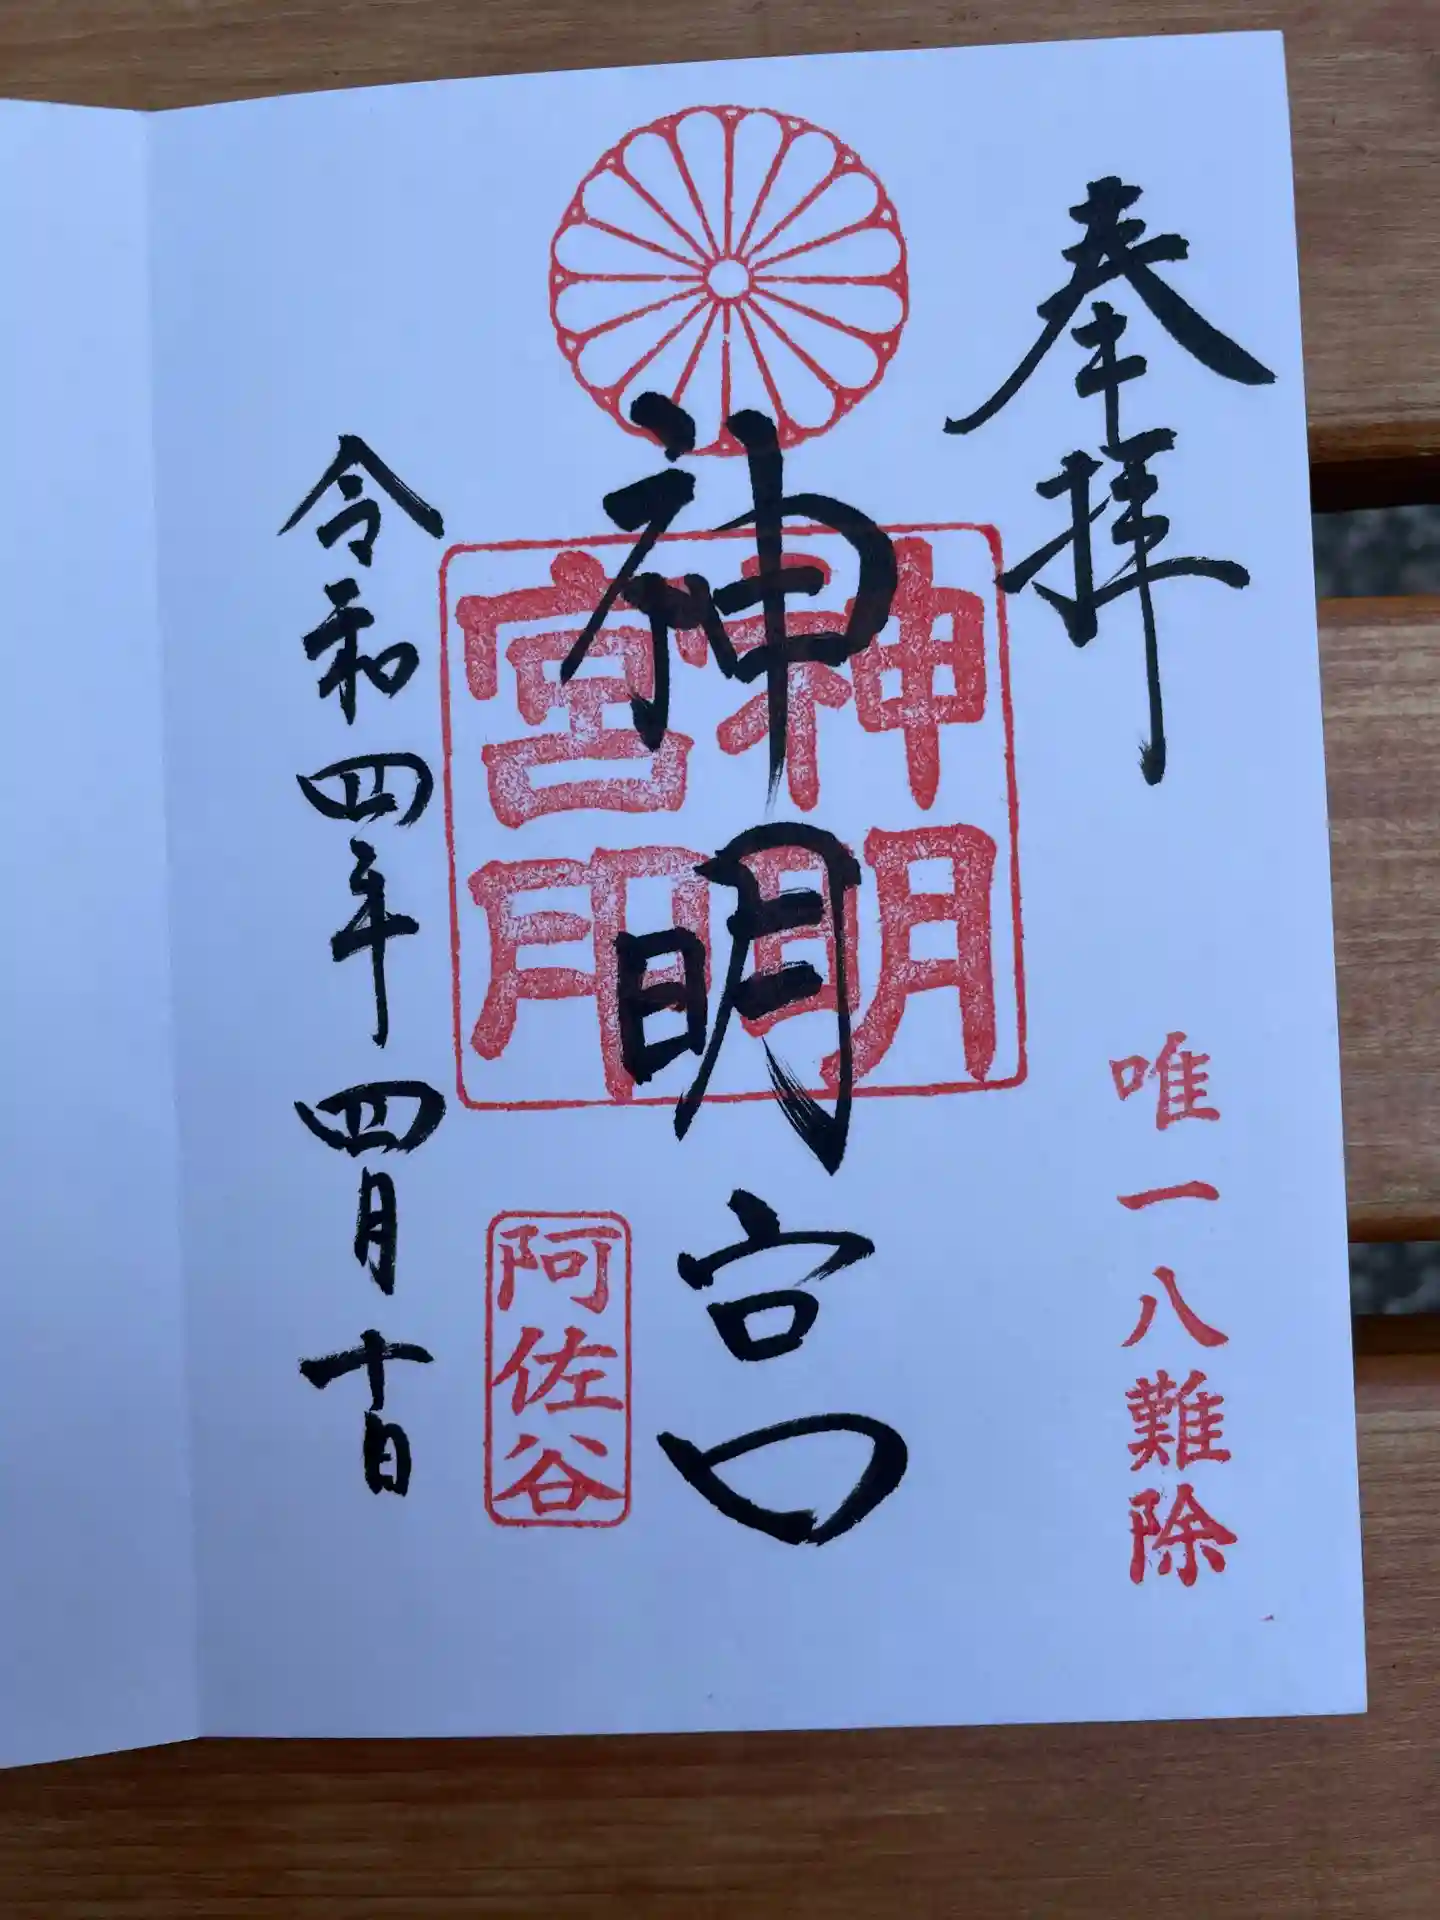 奉拝
唯一八難除
神明宮
神明宮印
阿佐谷
令和四年四月十日